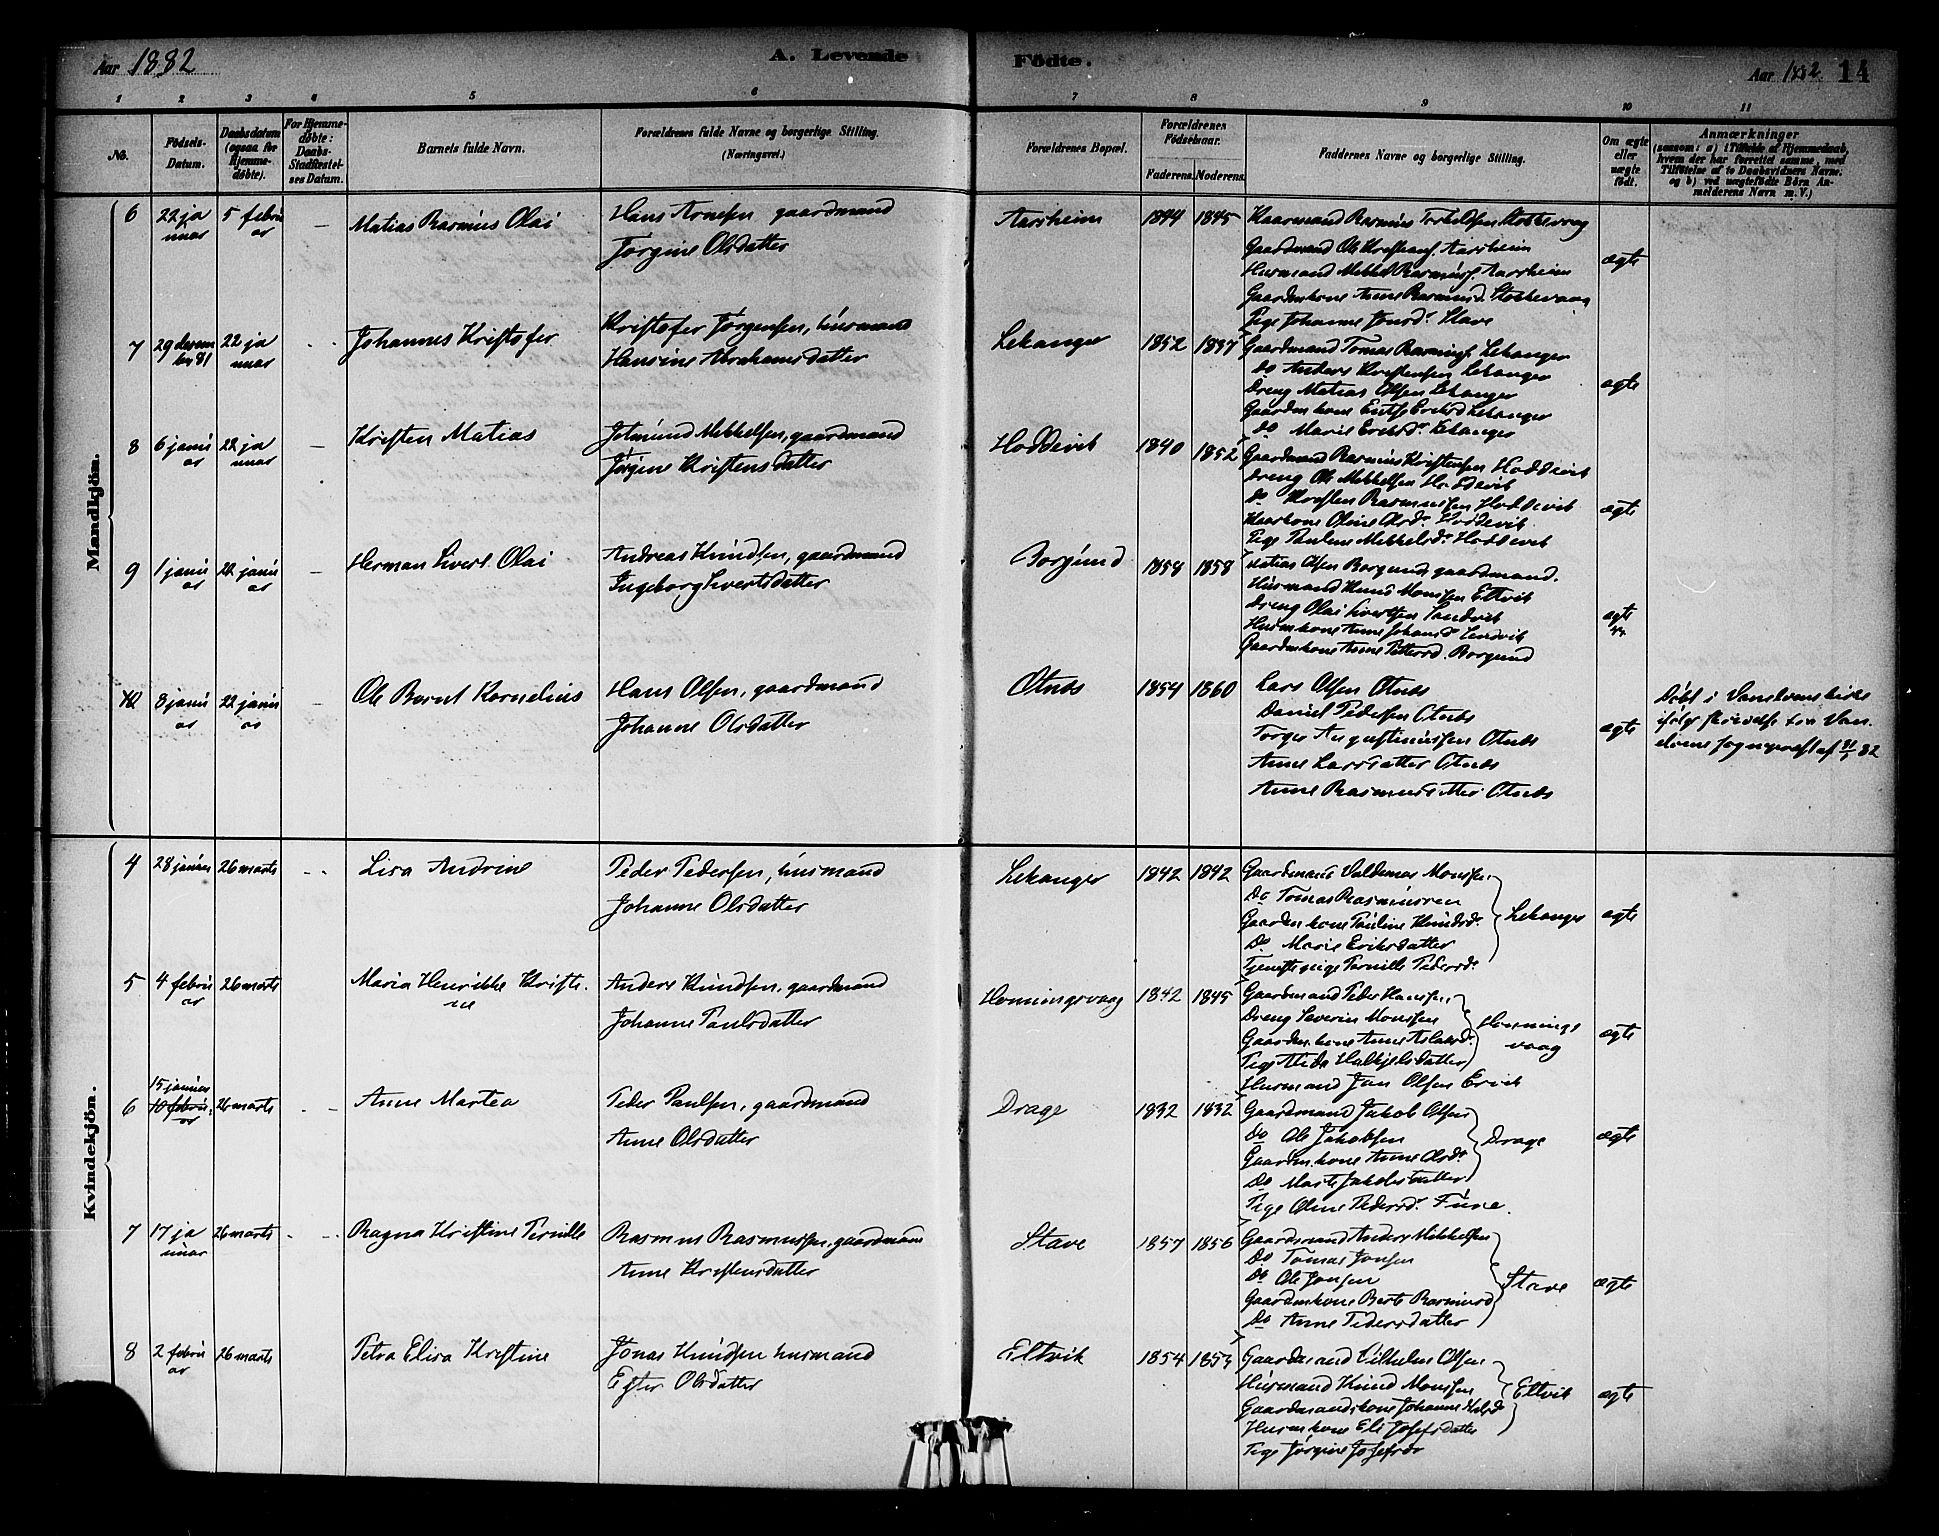 Aar 1882 A. Levende Födte. Aar 1882 14
1 2 3 4 5 6 7 8 9 10 11
No.
Födsels-Datum.
Daabsdatum (ogsaa for Hjemmedøbte).
For Hjemmedøbte: Daabs-Stadfæstelses Datum.
Barnets fulde Navn.
Forældrenes fulde Navne og borgerlige Stilling. (Næringsvei.)
Forældrenes Bopæl.
Forældrenes Födselsaar.
Faderens. Moderens.
Faddernes Navne og borgerlige Stilling.
Om ægte eller uægte födt.
Anmærkninger
(saasom: a) i Tilfælde af Hjemmedaab, hvem der har forrettet samme, med Tilföielse af to Daabsvidners Navne; og b) ved uægtefødte Börn Anmelderens Navn m. V.)
Mandkjön.
6 22 januar 5 februar — Matias Rasmus Olai
Hans Arnesen gaardmand
Jørgine Olsdatter
Aarsheim 1844 1845
Kaarmand Rasmus Torkildsen Stokkevaag
Gaardmand Ole Aarsheim
Husmand Mikkel Rasmuss. Aarsheim
Gaardmkone Anne Rasmusd. Stokkevaag
Pige Johanne Jonsd. Stave
ægte
7 29 decem ber 81 22 januar - - Johannes Kristofer
Kristofer Jørgensen, husmand
Hansine Abrahamsdatter
Lekanger 1852 1837
Gaardmand Tomas Rasmuss. Lekanger
do Anders Kristensen Lekanger
Dreng Matias Olsen Lekanger
Gaardmkone Eriksd Lekanger
do Marie Eriksdr. Lekanger
ægte
8 6 januar 22 januar — Kristen Matias
Jetmund Mikkelsen, gaardmand
Jørgine Kristensdatter
Hoddevik 1840 1852
Gaardmand Rasmus Kristensen Hoddevik
Dreng Ole Mikkelsen Hoddevik
do Kristen Rasmussen Hoddevik
Kaarkone Oline Olsdr. Hoddevik
Pige Pauline Mikkelsdr. Hoddevik
ægte
9 1 januar 22 januar — Herman Sivert Olai
Andreas Knudsen, gaardmand
Ingeborg Sivertsdatter
Borgund 1854 1858
Matias Olsen Borgund gaardmand.
Husmand Knud Monssen Eltvik
Dreng Olai Sivertsen Sandvik
Husmkone Anne Johansd. Sandvik
Gaardmkone Anne Pettersd. Borgund
ægte
10 8 januar 22 januar — Ole Bernt Kornelius
Hans Olsen, gaardmand
Johanne Olsdatter
Otnes 1854 1860
Lars Olsen Otnes
Daniel Pedersen Otnes
Torger Augustinussen Otnes
Anne Larsdatter Otnes
Anne Rasmusdatter Otnes
ægte
Døbt i Vanelvens kirke
ifølge skrivelse fra Van-
elvens sogneprest af 31/1 82
Kvindekjön.
4 28 januar 26 marts - - Lisa Andrine
Peder Pedersen, husmand
Johanne Olsdatter
Lekanger 1842 1842
Gaardmand Valdemar Monssen
Do Tomas Rasmussen
Gaardmkone Pauline Knudsdr.
Do Marie Eriksdatter
Tjenestepige Pernille Pedersdr.
Lekanger
ægte
5 4 februar 26 marts Maria Henrikke Kristine
Anders Knudsen, gaardmand
Johanne Paulsdatter
Honningsvaag 1842 1845
Gaardmand Peder Hansen,
Dreng Severin Monssen
Gaardmkone Anne Aslaksdr.
Pige Alida Halkjelsdatter
Honningsvaag
Husmand Jan Olsen Ervik
ægte
6 15 januar 10 februar 26 marts - - Anne Martea
Peder Paulsen, gaardmand
Anne Olsdatter
Drage 1832 1832
Gaardmand Jakob Olsen
Do Ole Jakobsen
Gaardmkone Anne Olsdr.
Do Marte Jakobsdatter
Drage
Pige Oline Pedersdr. Fure.
ægte
7 17 januar 26 marts - - Ragna Kristine Pernille
Rasmus Rasmussen, gaardmand
Anne Kristensdatter
Stave 1857 1856
Gaardmand Anders Mikkelsen
Do Tomas Jonsen
Do Ole Jonsen
Gaardmkone Berte Rasmusd
Do Anne Pedersdatter
Stave
ægte
8 2 februar 26 marts Petra Elisa Kristine
Jonas Knudsen husmand
Ester Olsdatter
Eltvik 1854 1853
Gaardmand Vilhelm Olsen
Husmand Knud Monssen
Gaardmandskone Johanne
Husmkone Eli Josefsdatter
Eltvik
Pige Jørgine Josefsdr
ægte